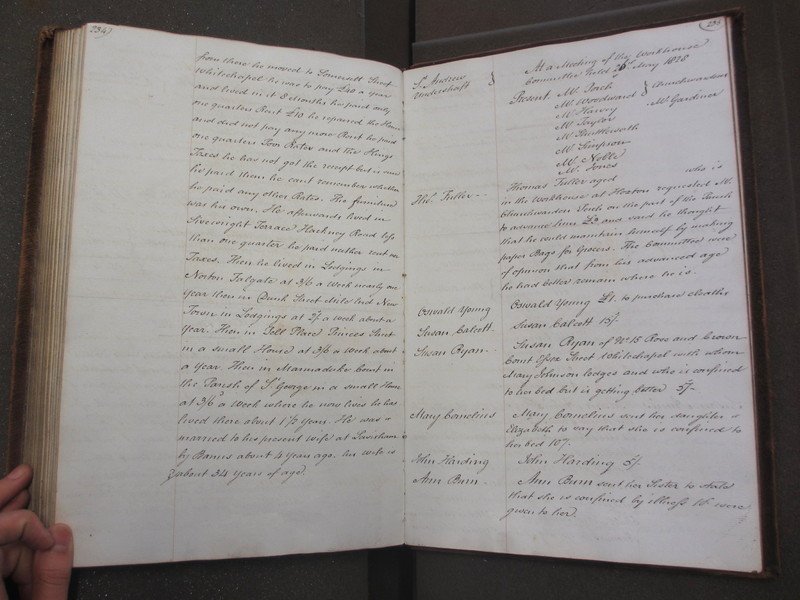 234
from there he moved to Somersett Street
Whitechapel he was to pay £40 a year
and lived in it 8 months he paid only
one quarters Rent £10 he repaired the House
and did not pay any more Rent he paid
one quarters Poor Rates and the Kings
Taxes he has not got the receipt but is sure
he paid them he cant remember whether
he paid any other Rates. The furniture
was his own. He afterwards lived in
Terrace Hackney Road less
than one quarter he paid neither rent nor
Taxes. Then he lived in Lodgings in
Norton Falgate at 3/6 a week nearly one
year then in Street Mile End New
Town in Lodgings at 2/ a week about a
year. Then in Place Princes Street
in a small House at 3/6 a week about
a year. Then in Marmaduke Court in
the Parish of St George in a small House
at 3/6 a week where he now lives he has
lived there about 1½ years. He was
married to his present wife at
by Banns about 4 years ago. his wife is
about 34 years of age.
235
St Andrew
Undershaft
At a Meeting of the Workhouse
Committee held May 1828
Present Mr. Jack
Mr. Woodward
Churchwardens
Mr. Harvey
Mr. Gardiner
Mr. Taylor
Mr. Butterworth
Mr. Simpson
Mr. Noble
Mr. Jones
Thos. Fuller
Thomas Fuller aged who is
in the Workhouse at Hoxton requested Mr.
Churchwarden on the part of the Parish
to advance him and said he thought
that he could maintain himself by making
paper Bags for Grocers. The Committee were
of opinion that from his advanced age
he had better remain where he is.
Oswald Young
Oswald Young £1. to purchase clothes
Susan Calcott
Susan Calcott 15/-
Susan Ryan
Susan Ryan of No. 15 Rose and Crown
Court Essex Street Whitechapel with whom
Mary Johnson lodges and who is confined
to her bed but is getting better 5/-
Mary Cornelius
Mary Cornelius sent her daughter
Elizabeth to say that she is confined to
her bed 10/.
John Harding
John Harding 5/.
Ann Bunn
Ann Bunn sent her Sister to state
that she is confined by illness were
given to her.